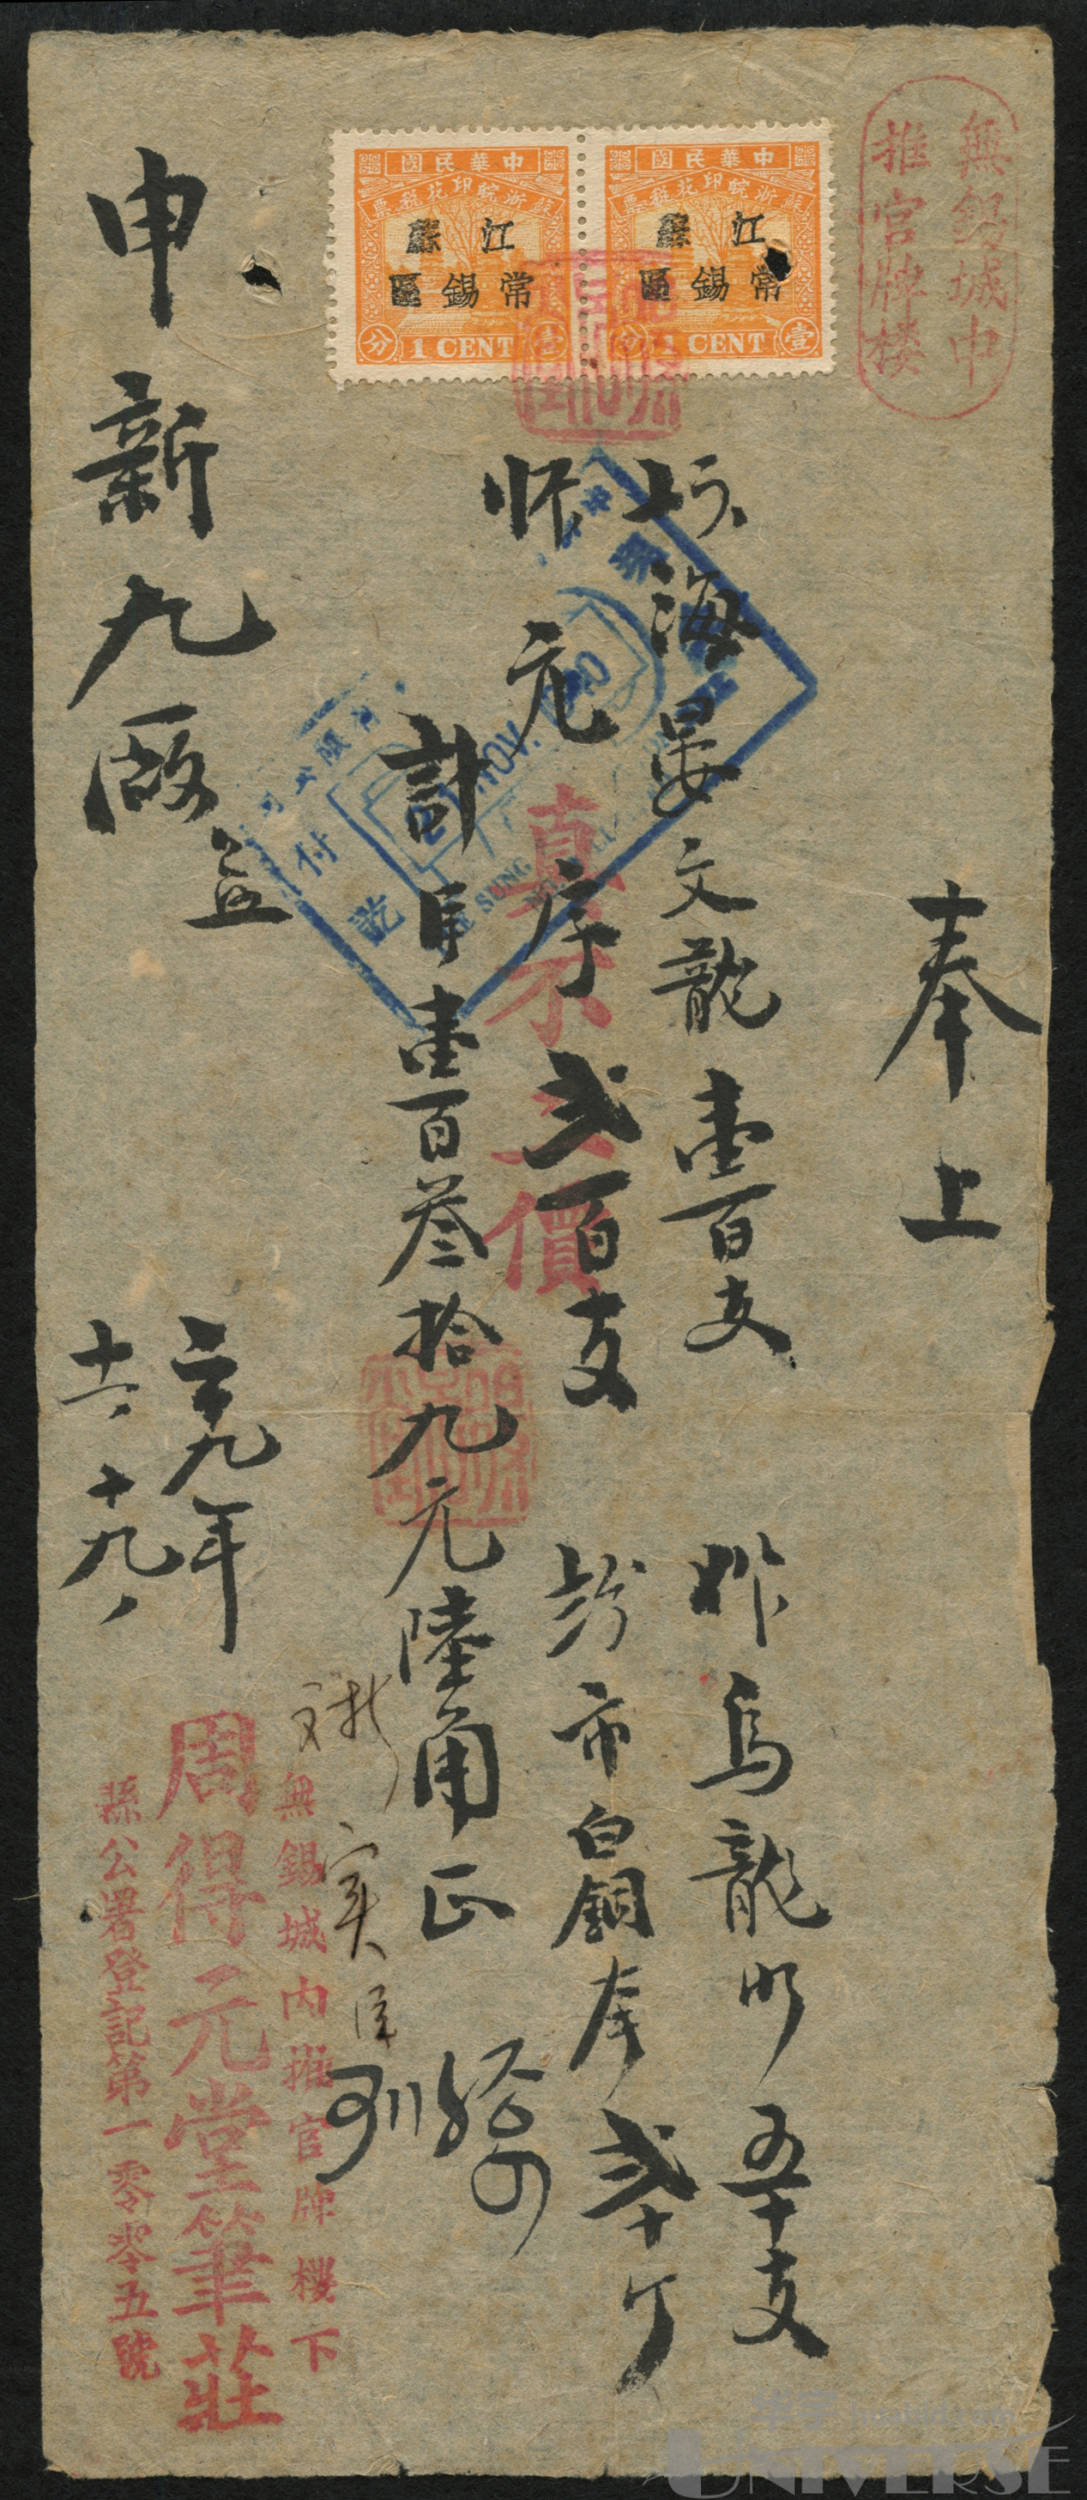 無錫城中
推官牌楼
中華民國
蘇浙皖印花稅票
江蘇
常錫區
壹分
1 CENT
中華民國
蘇浙皖印花稅票
江蘇
常錫區
壹分
1 CENT
奉上
海晏文龍壹百支
元序弍百支
烏龍
五十支
市白銅
弍十
計
壹百叁拾九元陸角正
真不二價
付訖
NOV.
SUNG
申新九廠
台
二十九年
十一、十九、
無錫城內推官牌樓下
周得元堂筆莊
縣公署登記第一零零五號
UNIVERSE